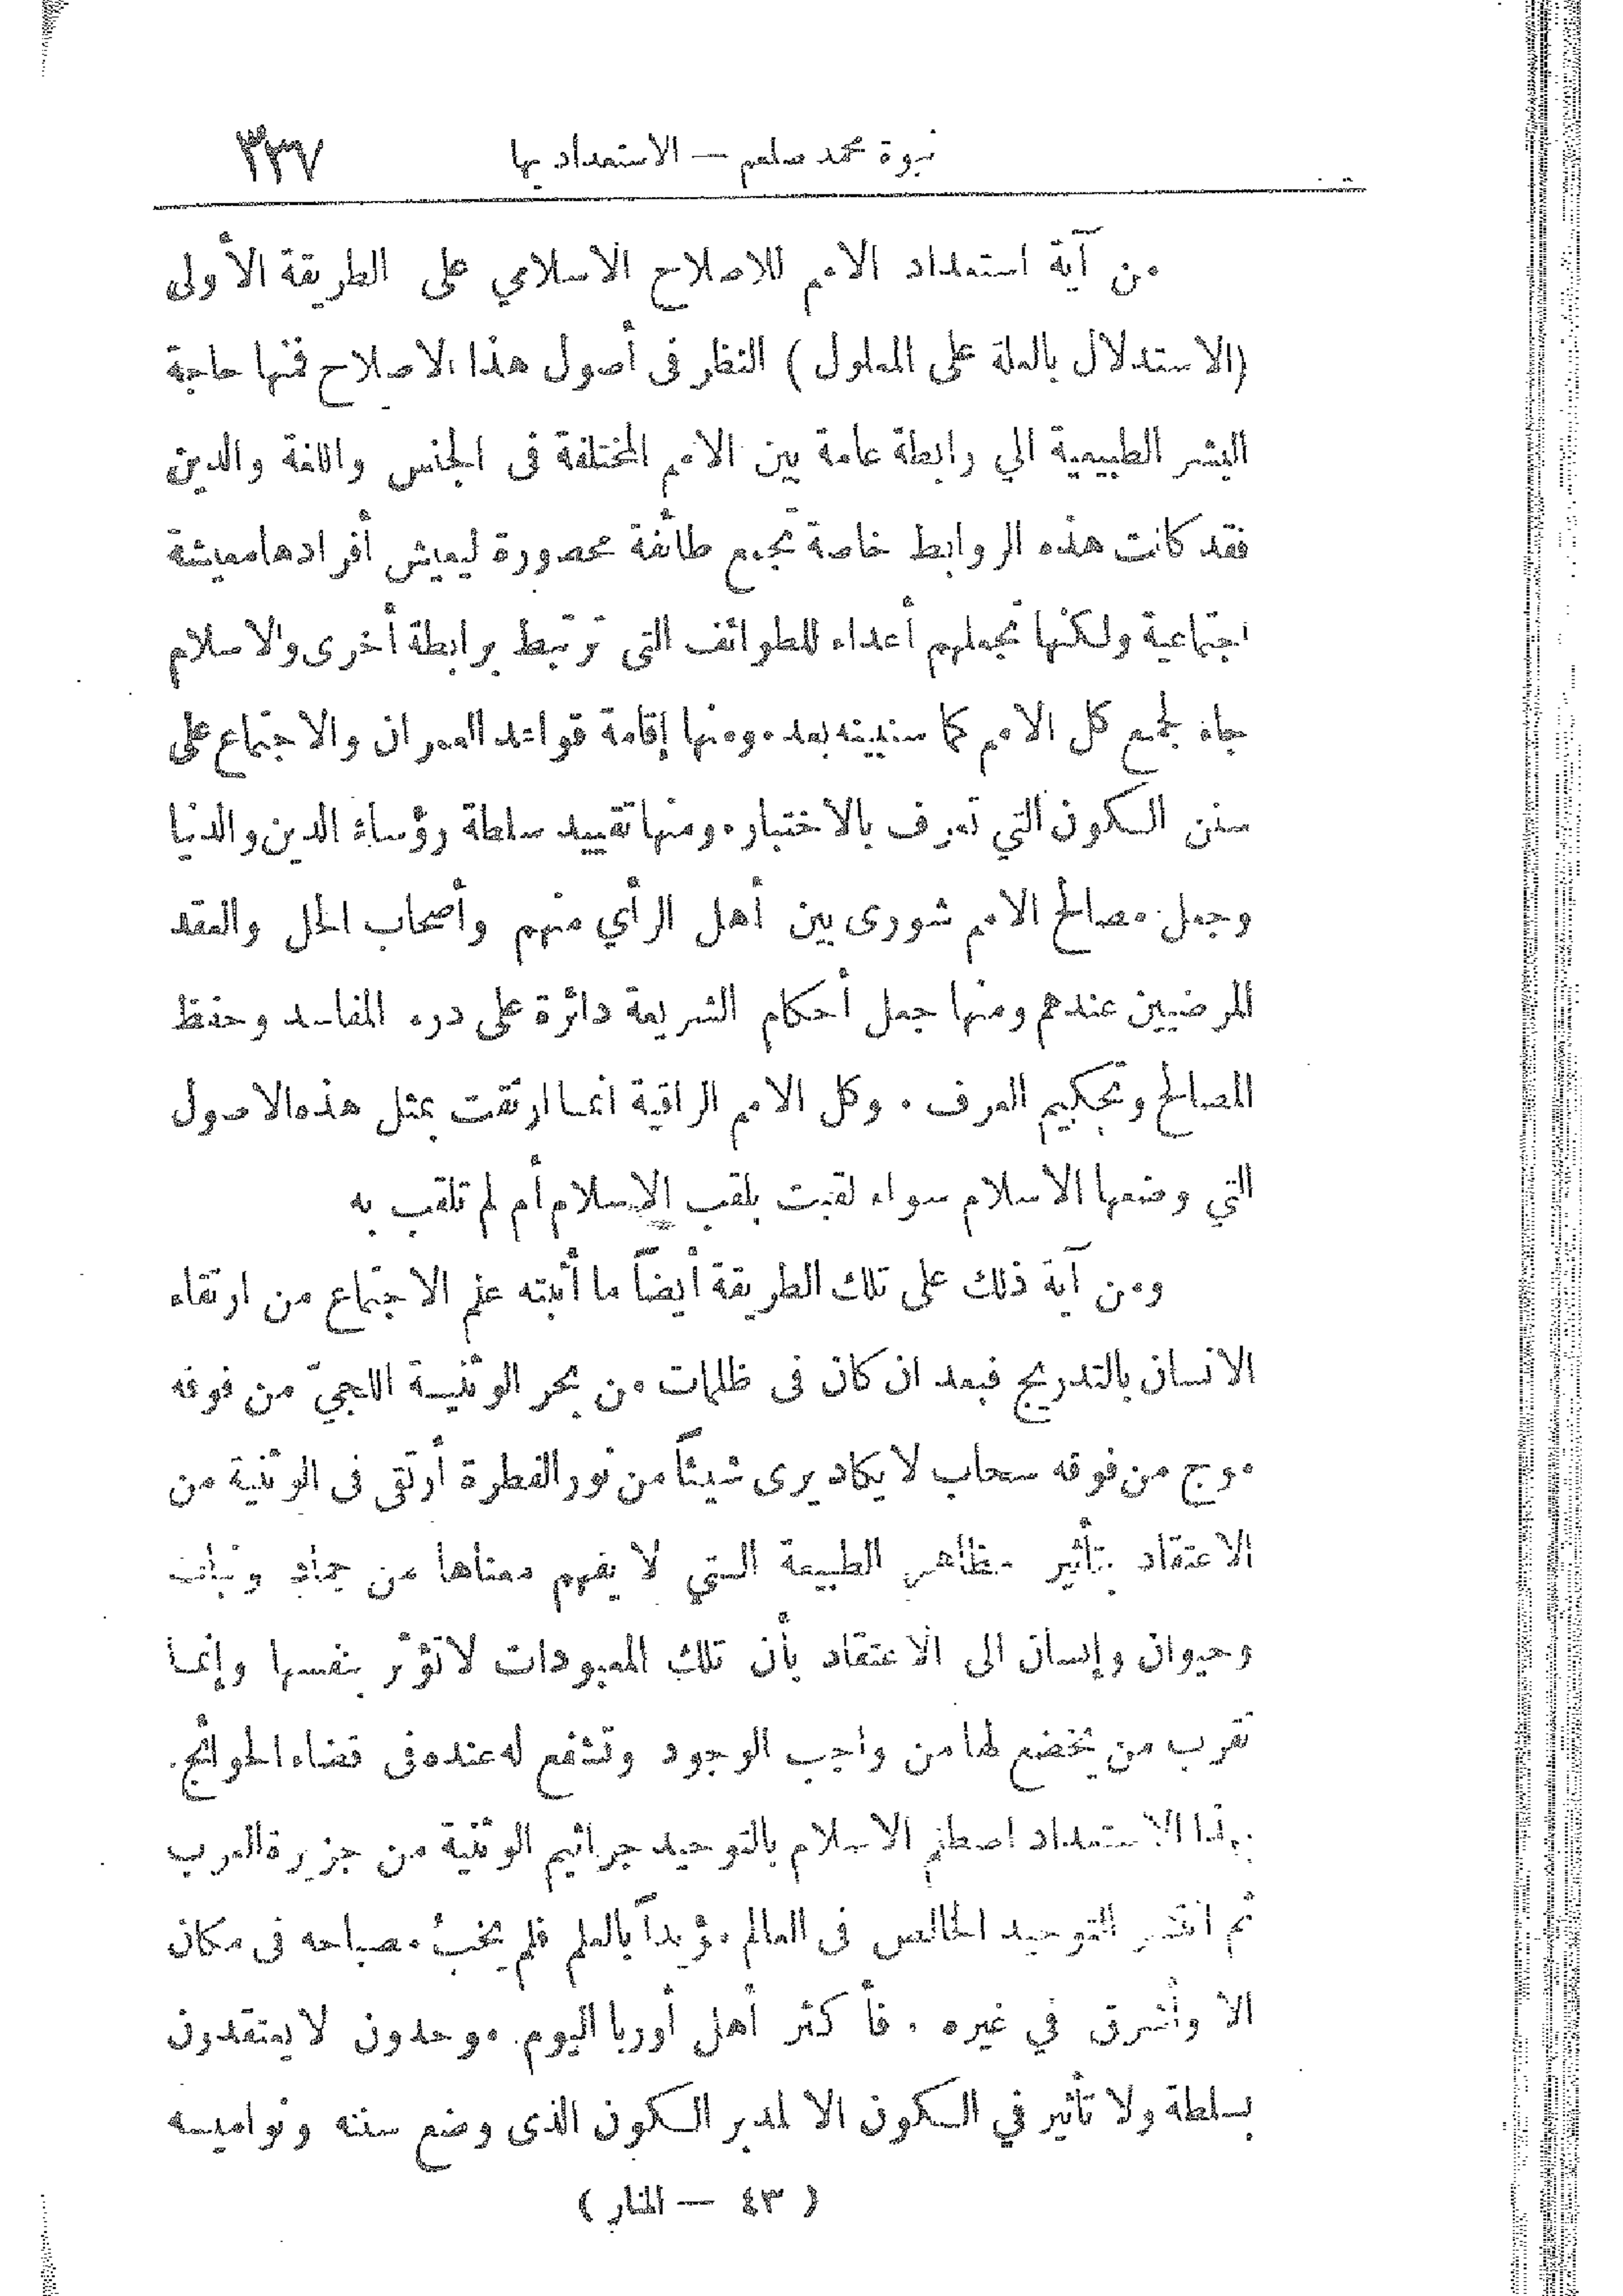 نبوة محمد صلعم — الاستعداد بها ٣٣٧
من آية استعداد الامم للاصلاح الاسلامي على الطريقة الأولى
(الاستدلال بالعلة على المعلول) النظر فى أصول هذا الاصلاح فمنها حاجة
البشر الطبيعية الي رابطة عامة بين الامم المختلفة فى الجنس واللغة والدين
فقد كانت هذه الروابط خاصة تجمع طائفة محصورة ليعيش أفرادها معيشة
اجتماعية ولكنها تجعلهم أعداء للطوائف التى ترتبط برابطة أخرى والاسلام
جاء لجمع كل الامم كما سنبينه بعد. ومنها إقامة قواعد العمران والاجتماع على
سنن الكون التي تعرف بالاختبار. ومنها تقييد سلطة رؤساء الدين والدنيا
وجعل مصالح الامم شورى بين أهل الرأي منهم وأصحاب الحل والعقد
المرضيين عندهم ومنها جعل أحكام الشريعة دائرة على درء المفاسد وحفظ
المصالح وتحكيم العرف . وكل الامم الراقية انما ارتقت بمثل هذه الاصول
التي وضعها الاسلام سواء لقبت بلقب الإسلام أم لم تلقب به
ومن آية ذلك على تلك الطريقة أيضاً ما أثبته علم الاجتماع من ارتقاء
الانسان بالتدريج فبعد ان كان فى ظلمات من بحر الوثنية اللجيّ من فوقه
موج من فوقه سحاب لا يكاد يرى شيئاً من نور الفطرة أرتقى فى الوثنية من
الاعتقاد بتأثير مظاهر الطبيعة التي لا يفهم معناها من جماد ونبات
وحيوان وإنسان الى الاعتقاد بأن تلك المعبودات لا تؤثر بنفسها وإنما
تقرب من يخضع لها من واجب الوجود وتشفع له عنده فى قضاء الحوائج.
بهذا الاستعداد اصطلم الاسلام بالتوحيد جراثيم الوثنية من جزيرة العرب
ثم انتشر التوحيد الخالص فى العالم مؤيداً بالعلم فلم يخبُ مصباحه فى مكان
الا وأشرق في غيره . فأكثر أهل أوربا اليوم موحدون لا يعتقدون
بسلطة ولا تأثير في الكون الا لمدبر الكون الذى وضع سننه ونواميسه
( ٤٣ — المنار )